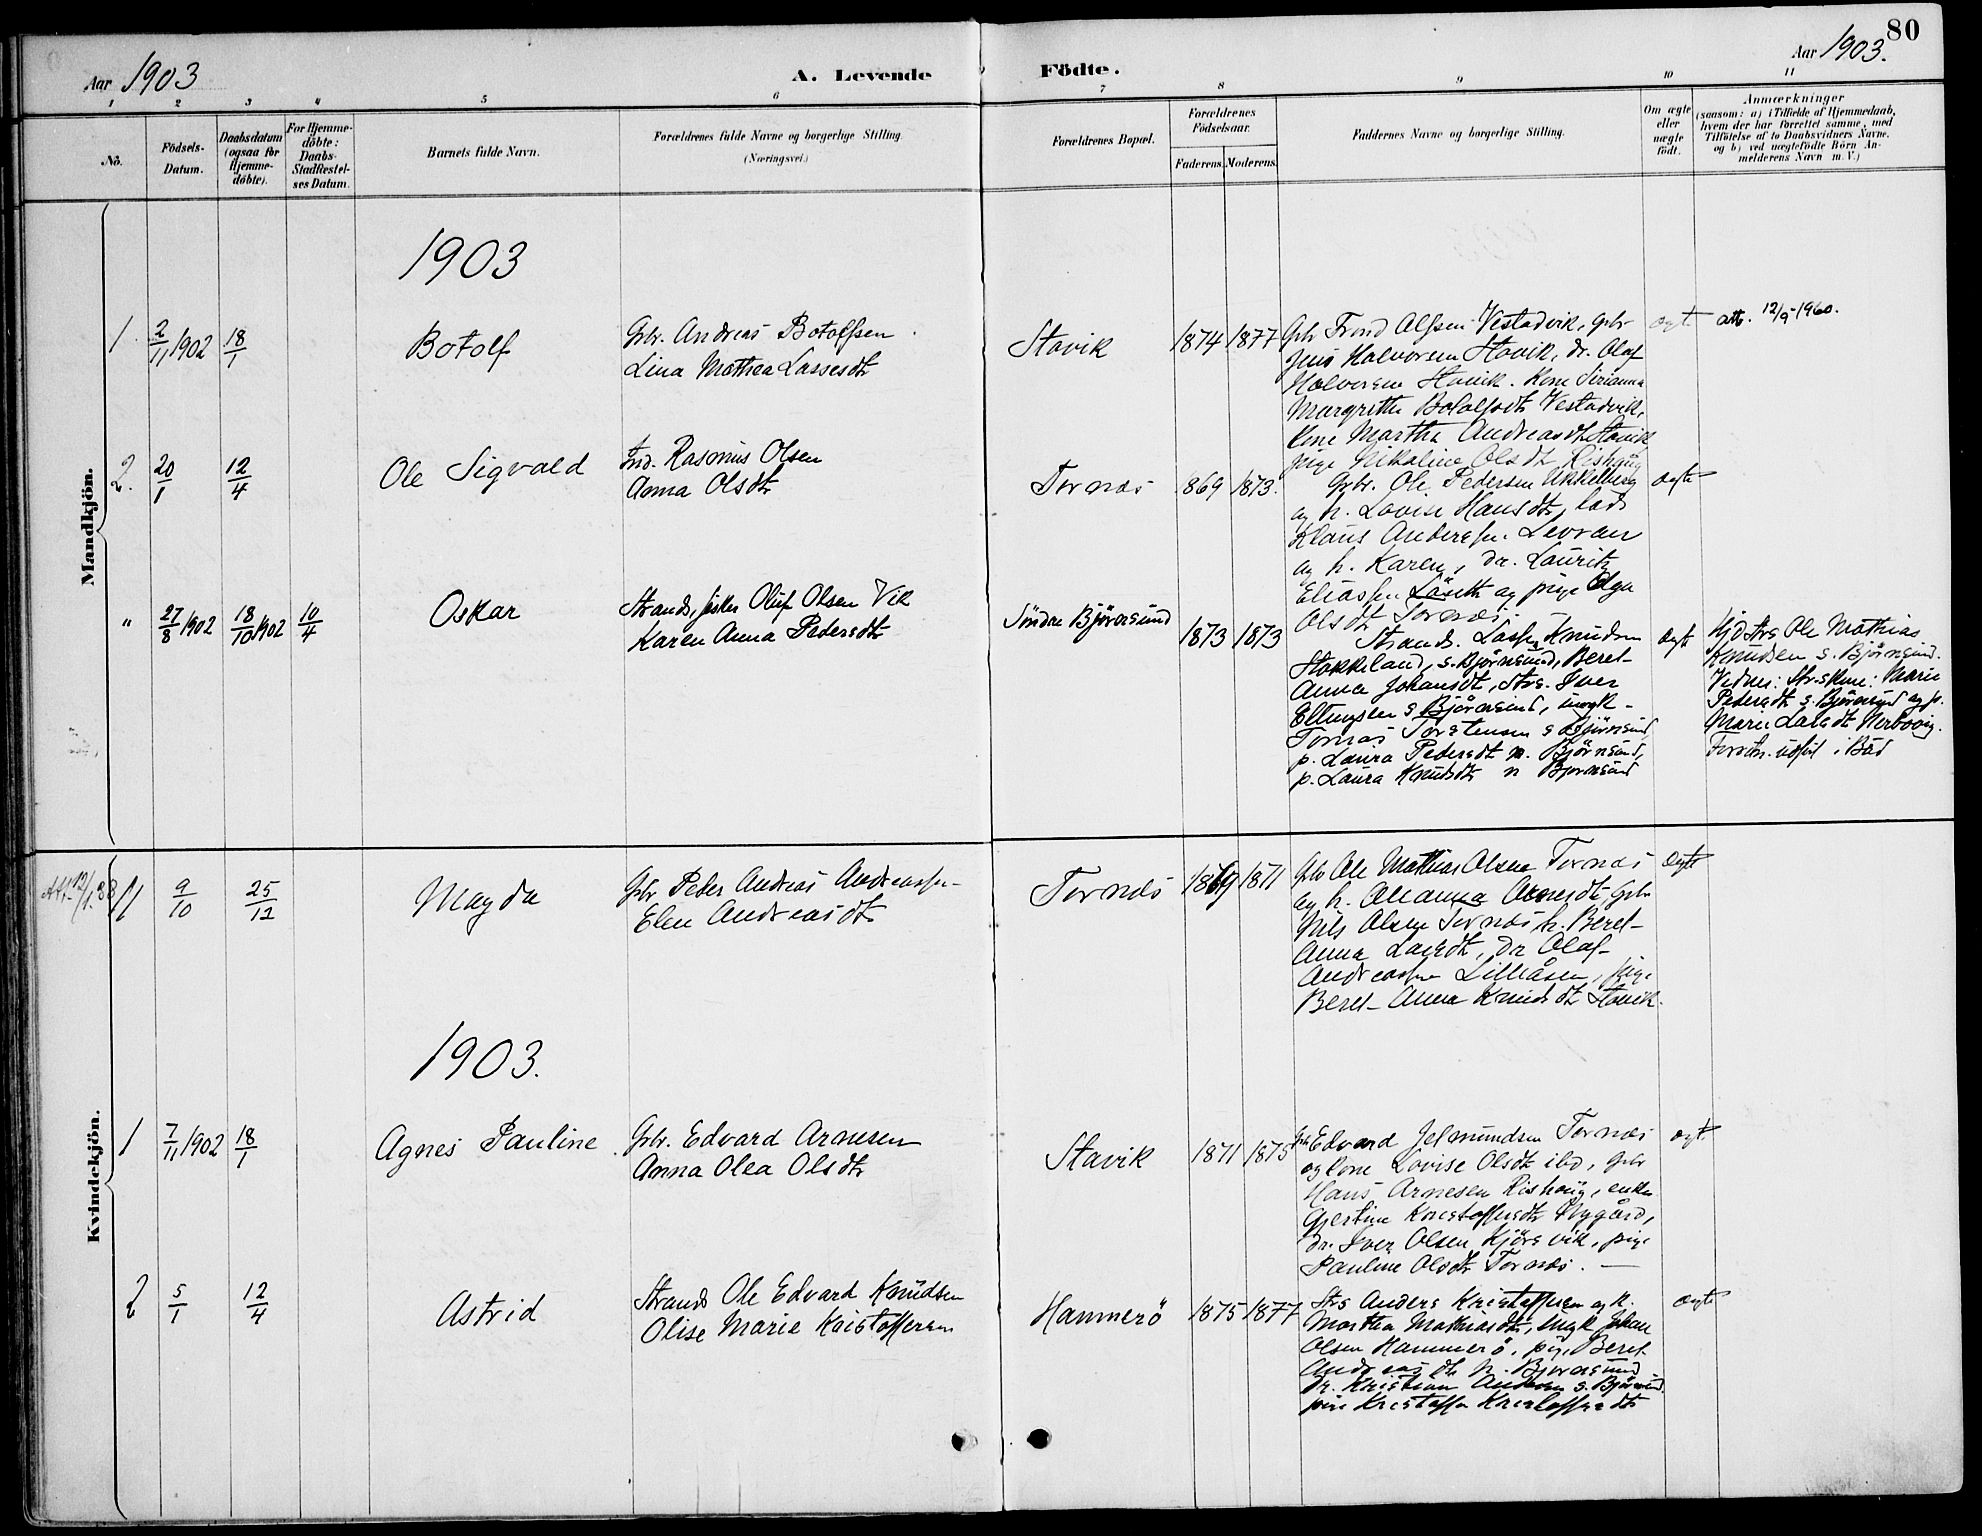 80
Aar 1903
A. Levende
Födte.
Aar 1903.
1 2 3 4 5 6 7 8 9 10 11
No.
Födsels-
Datum.
Daabsdatum
(ogsaa for
Hjemme-
döbte).
For Hjemme-
döbte:
Daabs-
Stadfæstel-
ses Datum.
Barnets fulde Navn.
Forældrenes fulde Navne og borgerlige Stilling.
(Næringsvei.)
Forældrenes Bopæl.
Forældrenes
Födselsaar.
Faderens.
Moderens.
Faddernes Navne og borgerlige Stilling.
Om ægte
eller
uægte
födt.
Anmærkninger
(saasom: a) i Tilfælde af Hjemmedaab,
hvem der har forrettet samme, med
Tilföielse af to Daabsvidners Navne.
og b) ved uægtefödte Börn An-
melderens Navn m. V.)
Mandkjön.
1903
1. 2/11 1902 18/1
Botolf
Gbr. Andreas Botolfsen
Lina Mathea Lassesdtr
Stavik
1874 1877
Gbr Trond Alfsen Vestadvik, Gbr
Jens Halvorsen Stavik, dr. Olaf
Halvorsen Stavik. Kone Sirianna
Margrethe Botolfsdtr Vestadvik,
Kone Martha Andreasdtr Stavik
pige Nikoline Olsdtr Rishaug
ægt.
att. 12/9-1960.
2. 20/1 12/4
Ole Sigvald
Ind. Rasmus Olsen
Anna Olsdtr
Tornes
1869 1873.
Gbr. Ole Pedersen
og h. Lovise Hansdtr, lods
Klaus Anderssen Levran
og h. Karen, dr. Lauritz
Eliassen og pige Olga
Olsdtr Tornes.
ægte
" 27/8 1902 18/10 1902 10/4
Oskar
Strands. fisker Oluf Olsen Vik
Karen Anna Pedersdtr
Söndre Björnsund
1873 1873
Strands. Knudsen
Stokkeland, s. Björnsund, Beret-
Anna Johansdtr, Strs. Iver
Ellingsen s Björnsund, ungk-
Tomas Torstensen s Björnsund,
p. Laura Pedersdtr n. Björnsund,
p. Laura Knudsdtr n Björnsund
ægt
Hjd Strs Ole Mathias
Knudsen s. Björnsund.
Vidner: Str.skone: Marie
Pedersdtr s. Björnsund og p.
Maren Larsdtr Nerbovig.
i Bud
Kvindekjön.
Att. 12/1.38
11 9/10 25/12
Magda
Gbr Peder Andreas Andreassen
Elen Andreasdtr
Tornes
1869 1871
Gbr Ole Mathias Olsen Tornes
og h. Oleanna Arnesdtr, Gbr
Nils Olsen Tornes, h. Beret-
Anna Larsdtr, Dr Olaf
Andreassen Lillåsen, pige
Beret-Anna Knudsdtr Stavik.
ægte
1903.
1 7/11 1902 18/1
Agnes Pauline
Gbr. Edvard Arnesen
Anna Olea Olsdtr
Stavik
1871 1875
Gbr Edvard Jetmundsen Tornes
og kone Lovise Olsdtr ibd, Gbr
Hans Arnesen Rishaug, enke
Gjertine Kristoffersdtr Nygård,
dr. Iver Olsen Kjörsvik, pige
Pauline Olsdtr Tornes. —
ægt.
2 5/1 12/4
Astrid
Strands Ole Edvard Knudsen
Olise Marie Kristoffersen
Hammerö
1875 1877
Strs Anders Kristoffersen og k.
Martha Mathiasdtr, Ungk Johan
Olsen Hammerö, pige Beret
Andreasdtr N. Björnsund
Dr. Kristian Andersen s. Björnsund
pige Kristoffa Kristoffersdtr
ægte